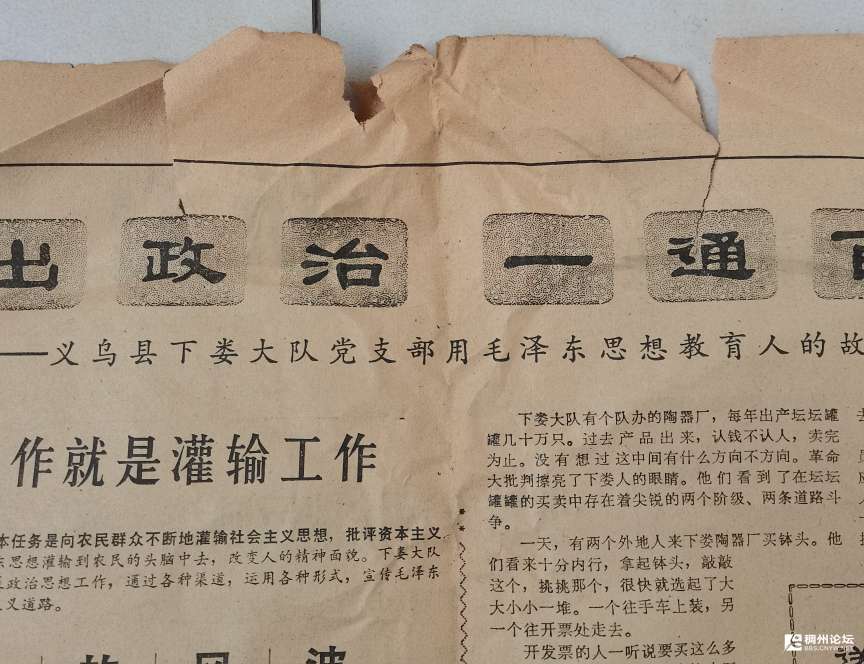 出政治 一通百
——义乌县下娄大队党支部用毛泽东思想教育人的故
作就是灌输工作
本任务是向农民群众不断地灌输社会主义思想，批评资本主义
东思想灌输到农民的头脑中去，改变人的精神面貌。下娄大队
政治思想工作，通过各种渠道，运用各种形式，宣传毛泽东
义道路。
下娄大队有个队办的陶器厂，每年出产坛坛罐
罐几十万只。过去产品出来，认钱不认人，卖完
为止。没有想过这中间有什么方向不方向。革命
大批判擦亮了下娄人的眼睛。他们看到了在坛坛
罐罐的买卖中存在着尖锐的两个阶级、两条道路斗
争。
一天，有两个外地人来下娄陶器厂买钵头。他
们看来十分内行，拿起钵头，敲敲
这个，挑挑那个，很快就选起了大
大小小一堆。一个往手车上装，另
一个往开票处走去。
开发票的人一听说要买这么多
稠州论坛
BBS.CNYW.NET